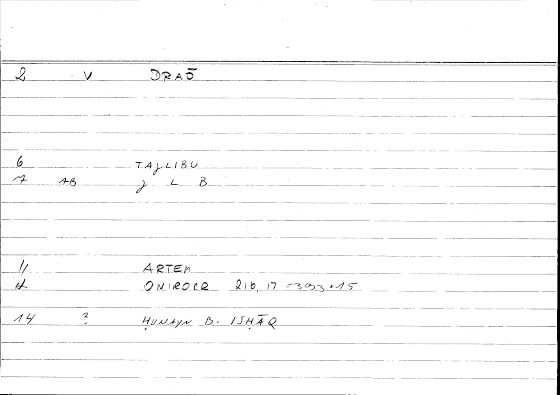 2 V DRAŠ
6 TAJLIBU
7 AB J L B
11 ARTEM
12 ONIROCR 216, 17 = 393.15
14 ? ḤUNAYN B. ISḤĀQ